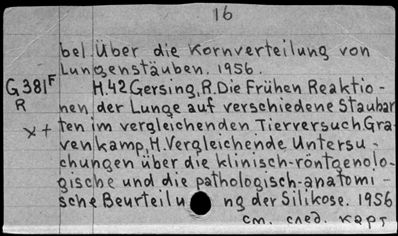 16
bel. Über die Kornverteilung von
Lungenstäuben. 1956.
G381F H.42 Gersing, R. Die Frühen Reaktio-
R nen der Lunge auf verschiedene Staubar
x+ ten im vergleichenden Tierversuch. Gra-
venkamp, H. Vergleichende Untersu-
chungen über die klinisch-röntgenolo-
gische und die pathologisch-anatomi-
sche Beurteilung der Silikose. 1956
см. след. карт